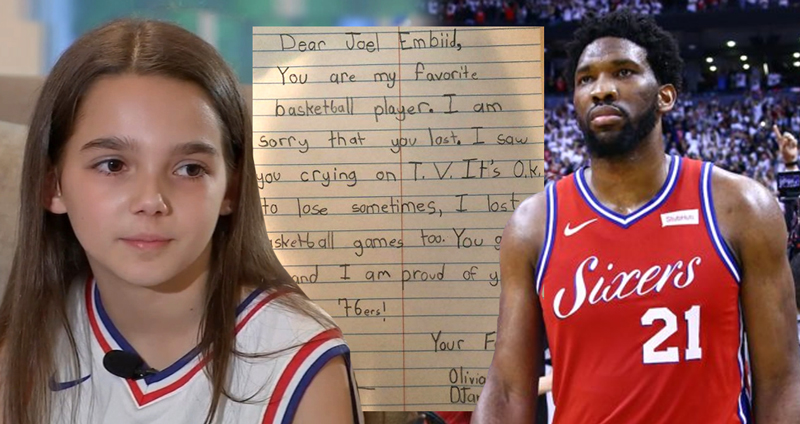 Dear Joel Embiid,
You are my favorite
basketball player. I am
sorry that you lost. I saw
you crying on T.V. It's O.k.
to lose sometimes, I lost
basketball games too. You
and I am proud of
76ers!
Your
Olivia
StubHub
Sixers
21